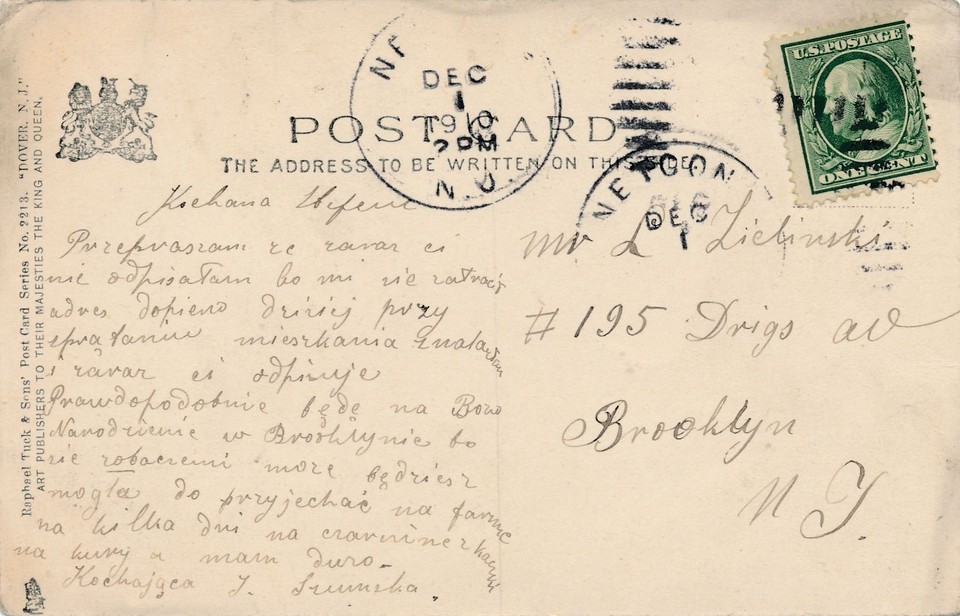 Raphael Tuck & Sons' Post Card Series No. 2213. "DOVER, N. J."
ART PUBLISHERS TO THEIR MAJESTIES THE KING AND QUEEN.
DEC
1
1910
2 PM
N.J.
U.S. POSTAGE
ONE CENT
POST CARD
THE ADDRESS TO BE WRITTEN ON THIS SIDE
NETCON
DEC
1
Kochana
Przepraszam ze zaraz ci
nie odpisałam bo mi sie zatracił
adres dopiero dzisiej przy
sprątaniu mieszkania znalazłam
i zaraz ci odpisuje
Prawdopodobnie będe na Bozo
Narodzienie w Brooklynie bo
sie zobaczemi moze będziesz
mogla do przyjechać na farme
na kilka dni na
na kury a mam duzo
Kochająca J.
Mr L Zielinski
# 195 Drigs av
Brooklyn
N Y.